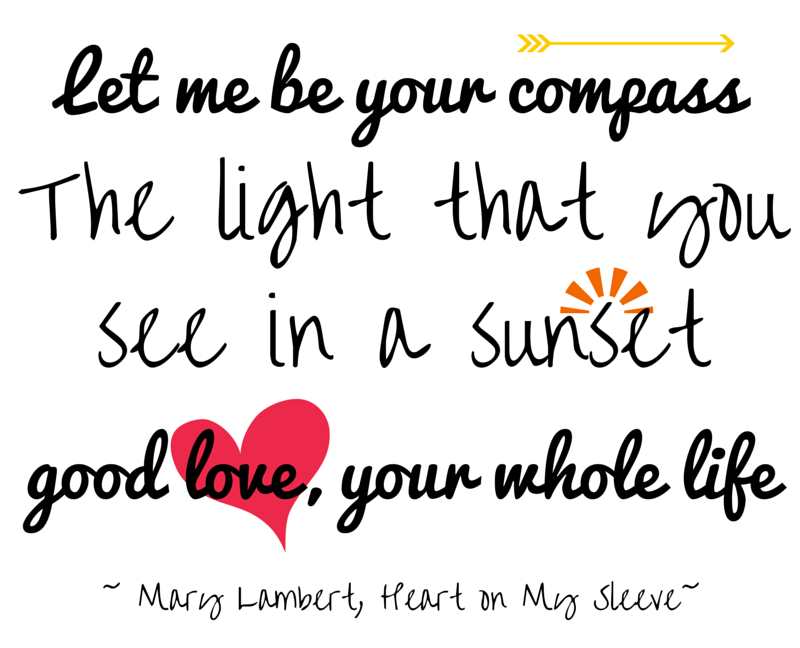 Let me be your compass
The light that you
see in a sunset
good love, your whole life
~ Mary Lambert, Heart on My Sleeve~